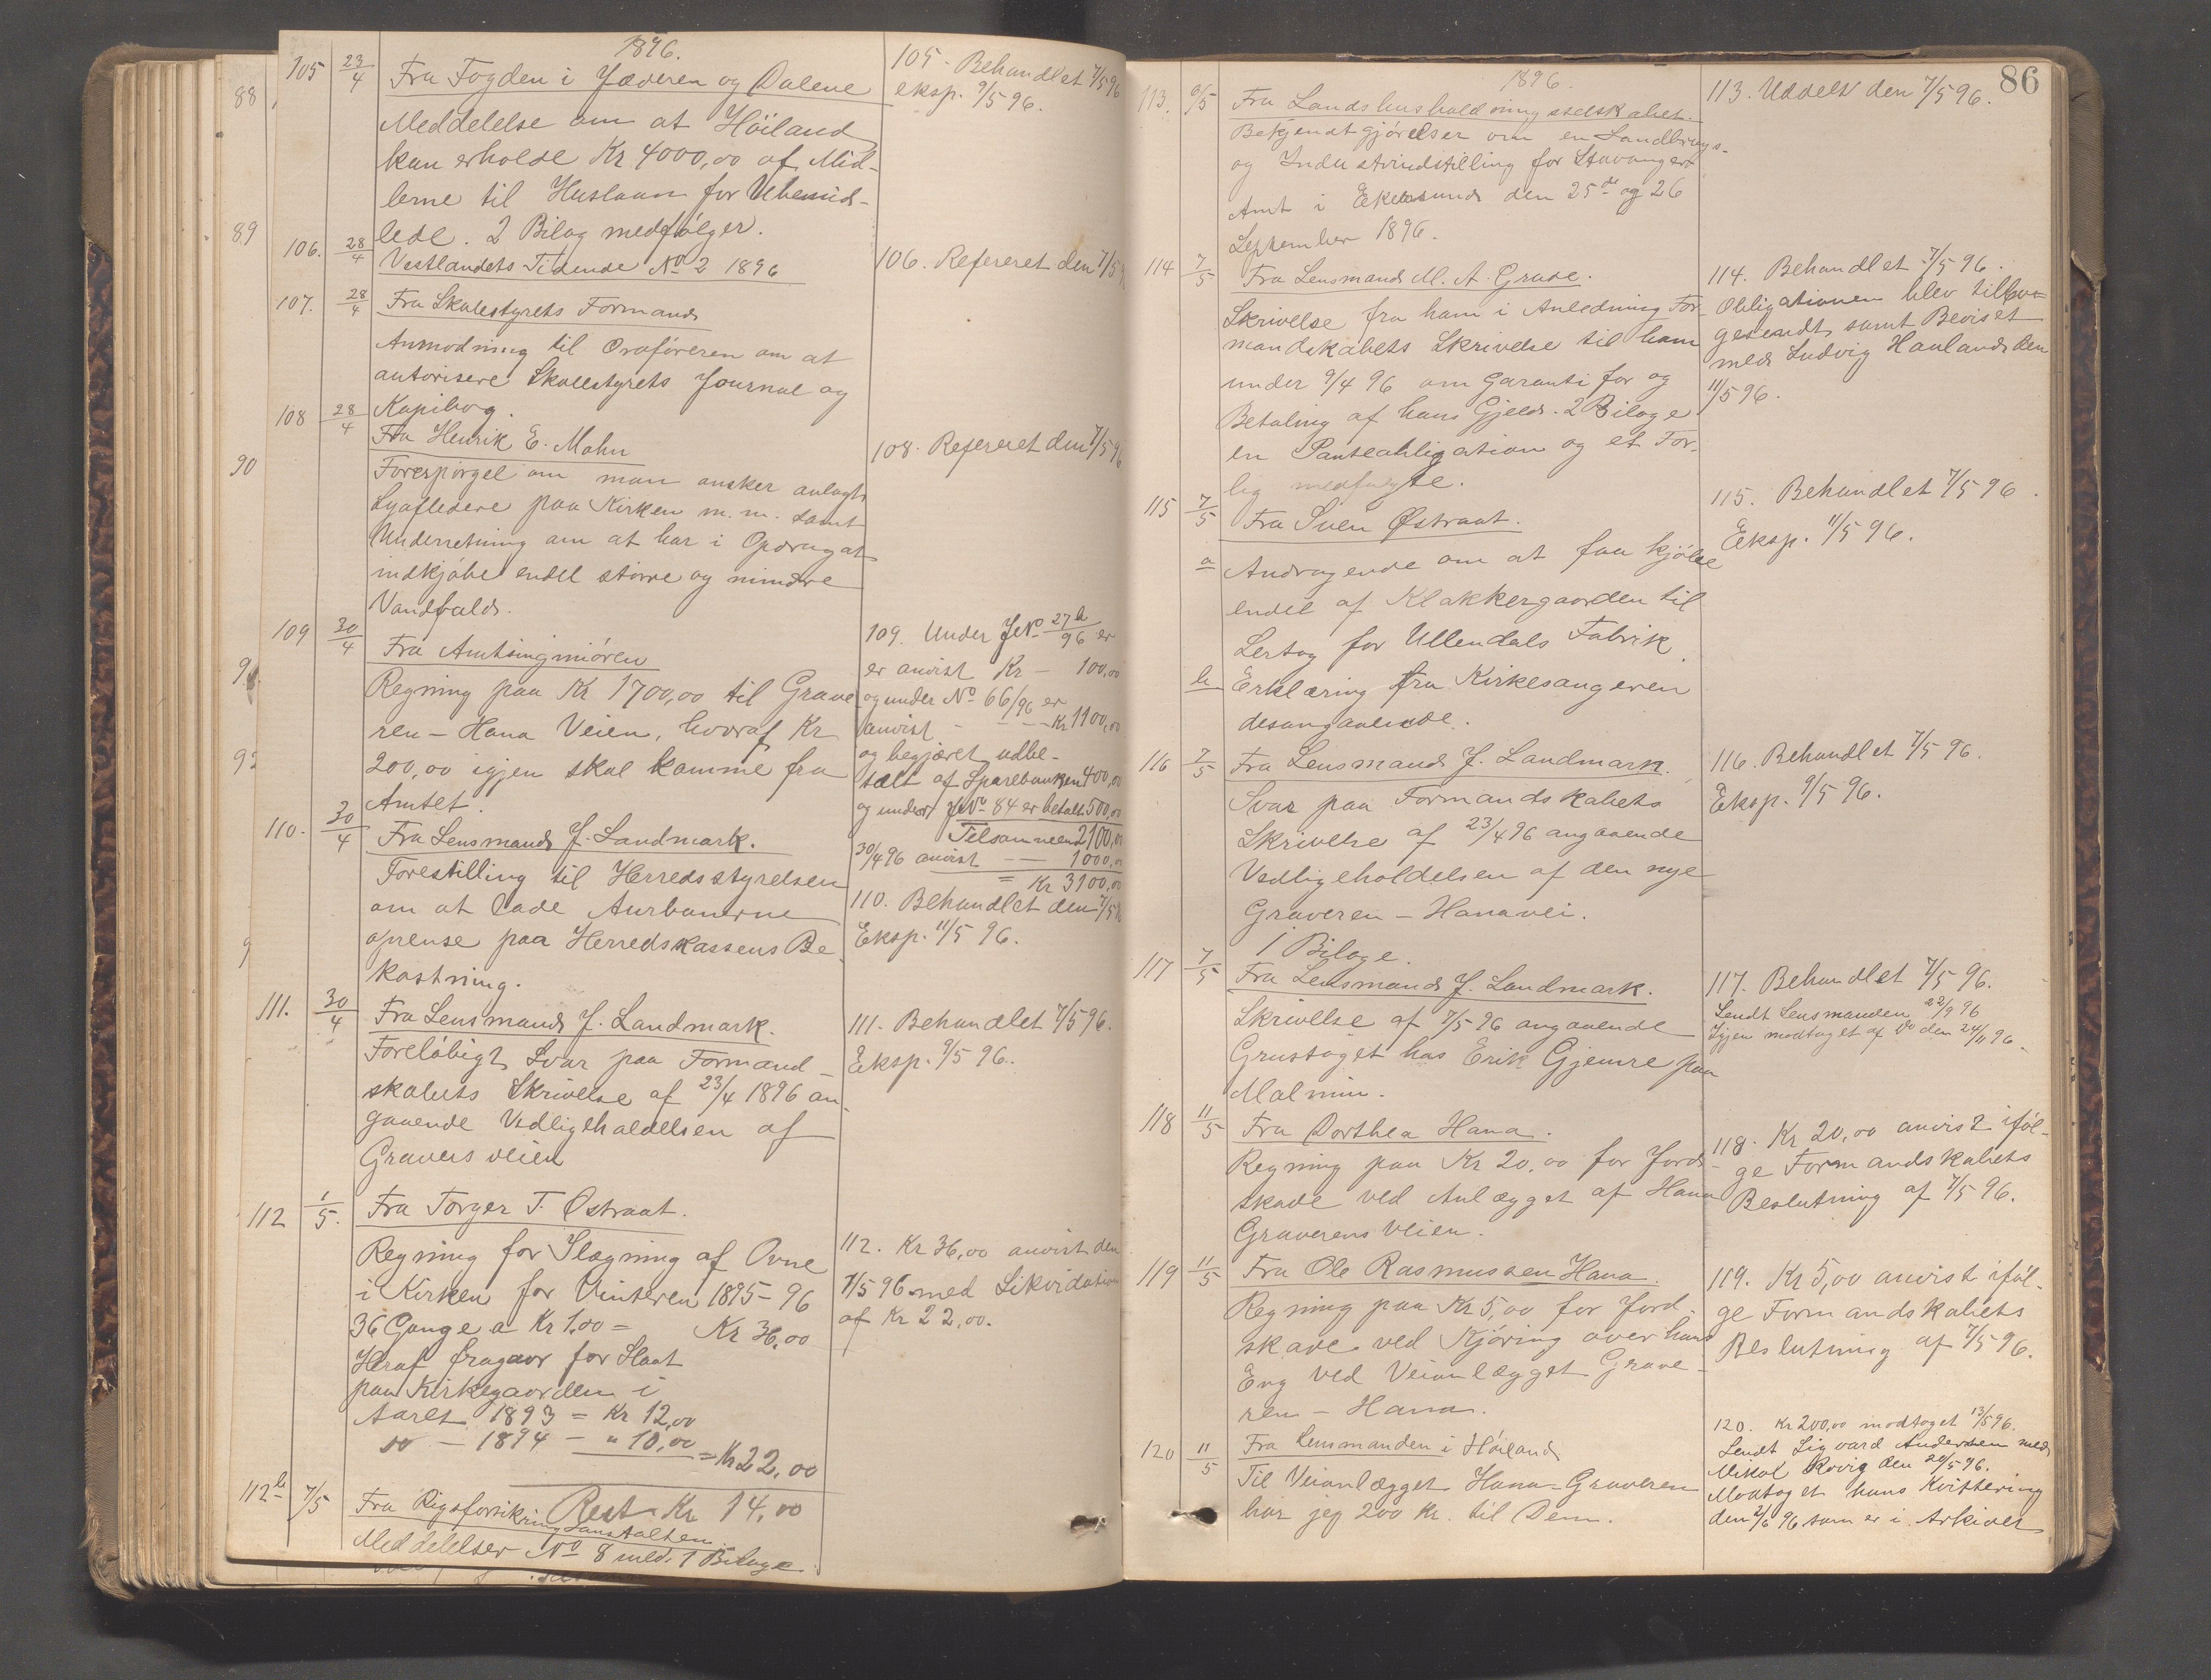 1896.
105 23/4 Fra Fogden i Jæderen og Dalene
Meddelelse om at Höiland
kan erholde Kr 4000,00 af Mid-
lerne til Huslaan for Ubemid-
lede. 2 Bilag medfölger.
105. Behandlet 7/5 96
eksp. 9/5 96.
106. 28/4 Vestlandets Tidende No 2 1896
106. Refereret den 7/5 96
107. 28/4 Fra Skolestyrets Formand
Anmodning til Ordföreren om at
autorisere Skolestyrets Journal og
Kopibog.
108 28/4 Fra Henrik E. Mohn
Forespörgel om man önsker anlagt
Lynafledere paa Kirken m. m. samt
Underretning om at har i Opdrag at
indkjöbe endel större og mindre
Vandfald.
108. Refereret den 7/5 96
109 30/4 Fra Amtsingniören
Regning paa Kr 1700,00 til Grave
ren - Hana Veien, hvoraf Kr
200,00 igjen skal komme fra
Amtet.
109. Under JNo 27b/96 er
er anvist Kr - 100,00
og under No 66/96 er
anvist - - - Kr 1100,00
og begjæret udbe-
talt af Sparebanken 400,00
og under JNo 84 er betalt 500,00
Tilsammen 2100,00
30/4 96 anvist - - 1000,00
= Kr 3100,00
110. 30/4 Fra Lensmand J. Landmark.
Forestilling til Herredsstyrelsen
om at lade Aurbanerne
oprense paa Herredskassens Be
kostning.
110. Behandlet den 7/5 96
Eksp. 11/5 96.
111. 30/4 Fra Lensmand J. Landmark.
Forelöbigt Svar paa Formand-
skabets Skrivelse af 23/4 1896 an-
gaaende Vedligeholdelsen af
Gravers veien
111. Behandlet 7/5 96.
Eksp. 9/5 96.
112 1/5. Fra Torger T. Østraat.
Regning for Ilægning af Ovne
i Kirken for Vinteren 1895-96
36 Gange a Kr 1,00 = Kr 36,00
Heraf fragaar for Slaat
paa Kirkegaarden i
Aaret 1893 = Kr 12,00
do - 1894 - " 10,00 = Kr 22,00
Rest Kr 14,00
112. Kr 36,00 anvist den
7/5 96 med Likvidation
af Kr 22,00.
112b 7/5 Fra Rigsforsikringsanstalten
Meddelelser No 8 med 1 Bilage
88
89
90
9
86
1896.
113. 6/5 Fra Landshusholdningsselskabet.
Bekjendtgjörelser om en Landbrugs-
og Industriudstilling for Stavanger
Amt i Ekersund den 25de og 26
September 1896.
113. Uddelt den 7/5 96.
114 7/5 Fra Lensmand M. A. Grude.
Skrivelse fra ham i Anledning For-
mandskabets Skrivelse til ham
under 9/4 96 om Garanti for og
Betaling af hans Gjeld. 2 Bilage
en Panteobligation og et For-
lig medfulgte.
114. Behandlet 7/5 96.
Obligationen blev tilba-
gesendt samt Beviset
med Ludvig Hauland den
11/5 96.
115 7/5 Fra Sven Østraat.
a Andragende om at faa kjöbe
endel af Klokkergaarden til
Lertag for Ullendals Fabrik.
b Erklæring fra Kirkesangeren
desangaaende.
115. Behandlet 7/5 96.
Eksp. 11/5 96.
116 7/5 Fra Lensmand J. Landmark.
Svar paa Formandskabets
Skrivelse af 23/4 96 angaaende
Vedligeholdelsen af den nye
Graveren - Hanavei.
1 Bilage.
116. Behandlet 7/5 96.
Eksp. 9/5 96.
117 7/5 Fra Lensmand J. Landmark.
Skrivelse af 7/5 96 angaaende
Grustaget hos Erik Gjemre paa
Malmin.
117. Behandlet 7/5 96.
Sendt Lensmanden 22/9 96
Igjen modtaget af Do den 24/11 96.
118 11/5 Fra Dorthea Hana.
Regning paa Kr 20,00 for Jord-
skade ved Anlægget af Hana
Graverens Veien.
118. Kr 20,00 anvist iföl-
ge Formandskabets
Beslutning af 7/5 96.
119 11/5 Fra Ole Rasmussen Hana.
Regning paa Kr 5,00 for Jord-
skade ved Kjöring over hans
Eng ved Veianlægget Grave-
ren - Hana.
119. Kr 5,00 anvist iföl-
ge Formandskabets
Beslutning af 7/5 96.
120 11/5 Fra Lensmanden i Höiland
Til Veianlægget Hana-Graveren
har jeg 200 Kr. til Dem.
120. Kr 200,00 modtaget 13/5 96.
Sendt Sigvard Andersen med
Mikal Rovig den 20/5 96.
Modtaget hans Kvittering
den 2/6 96 som er i Arkivet